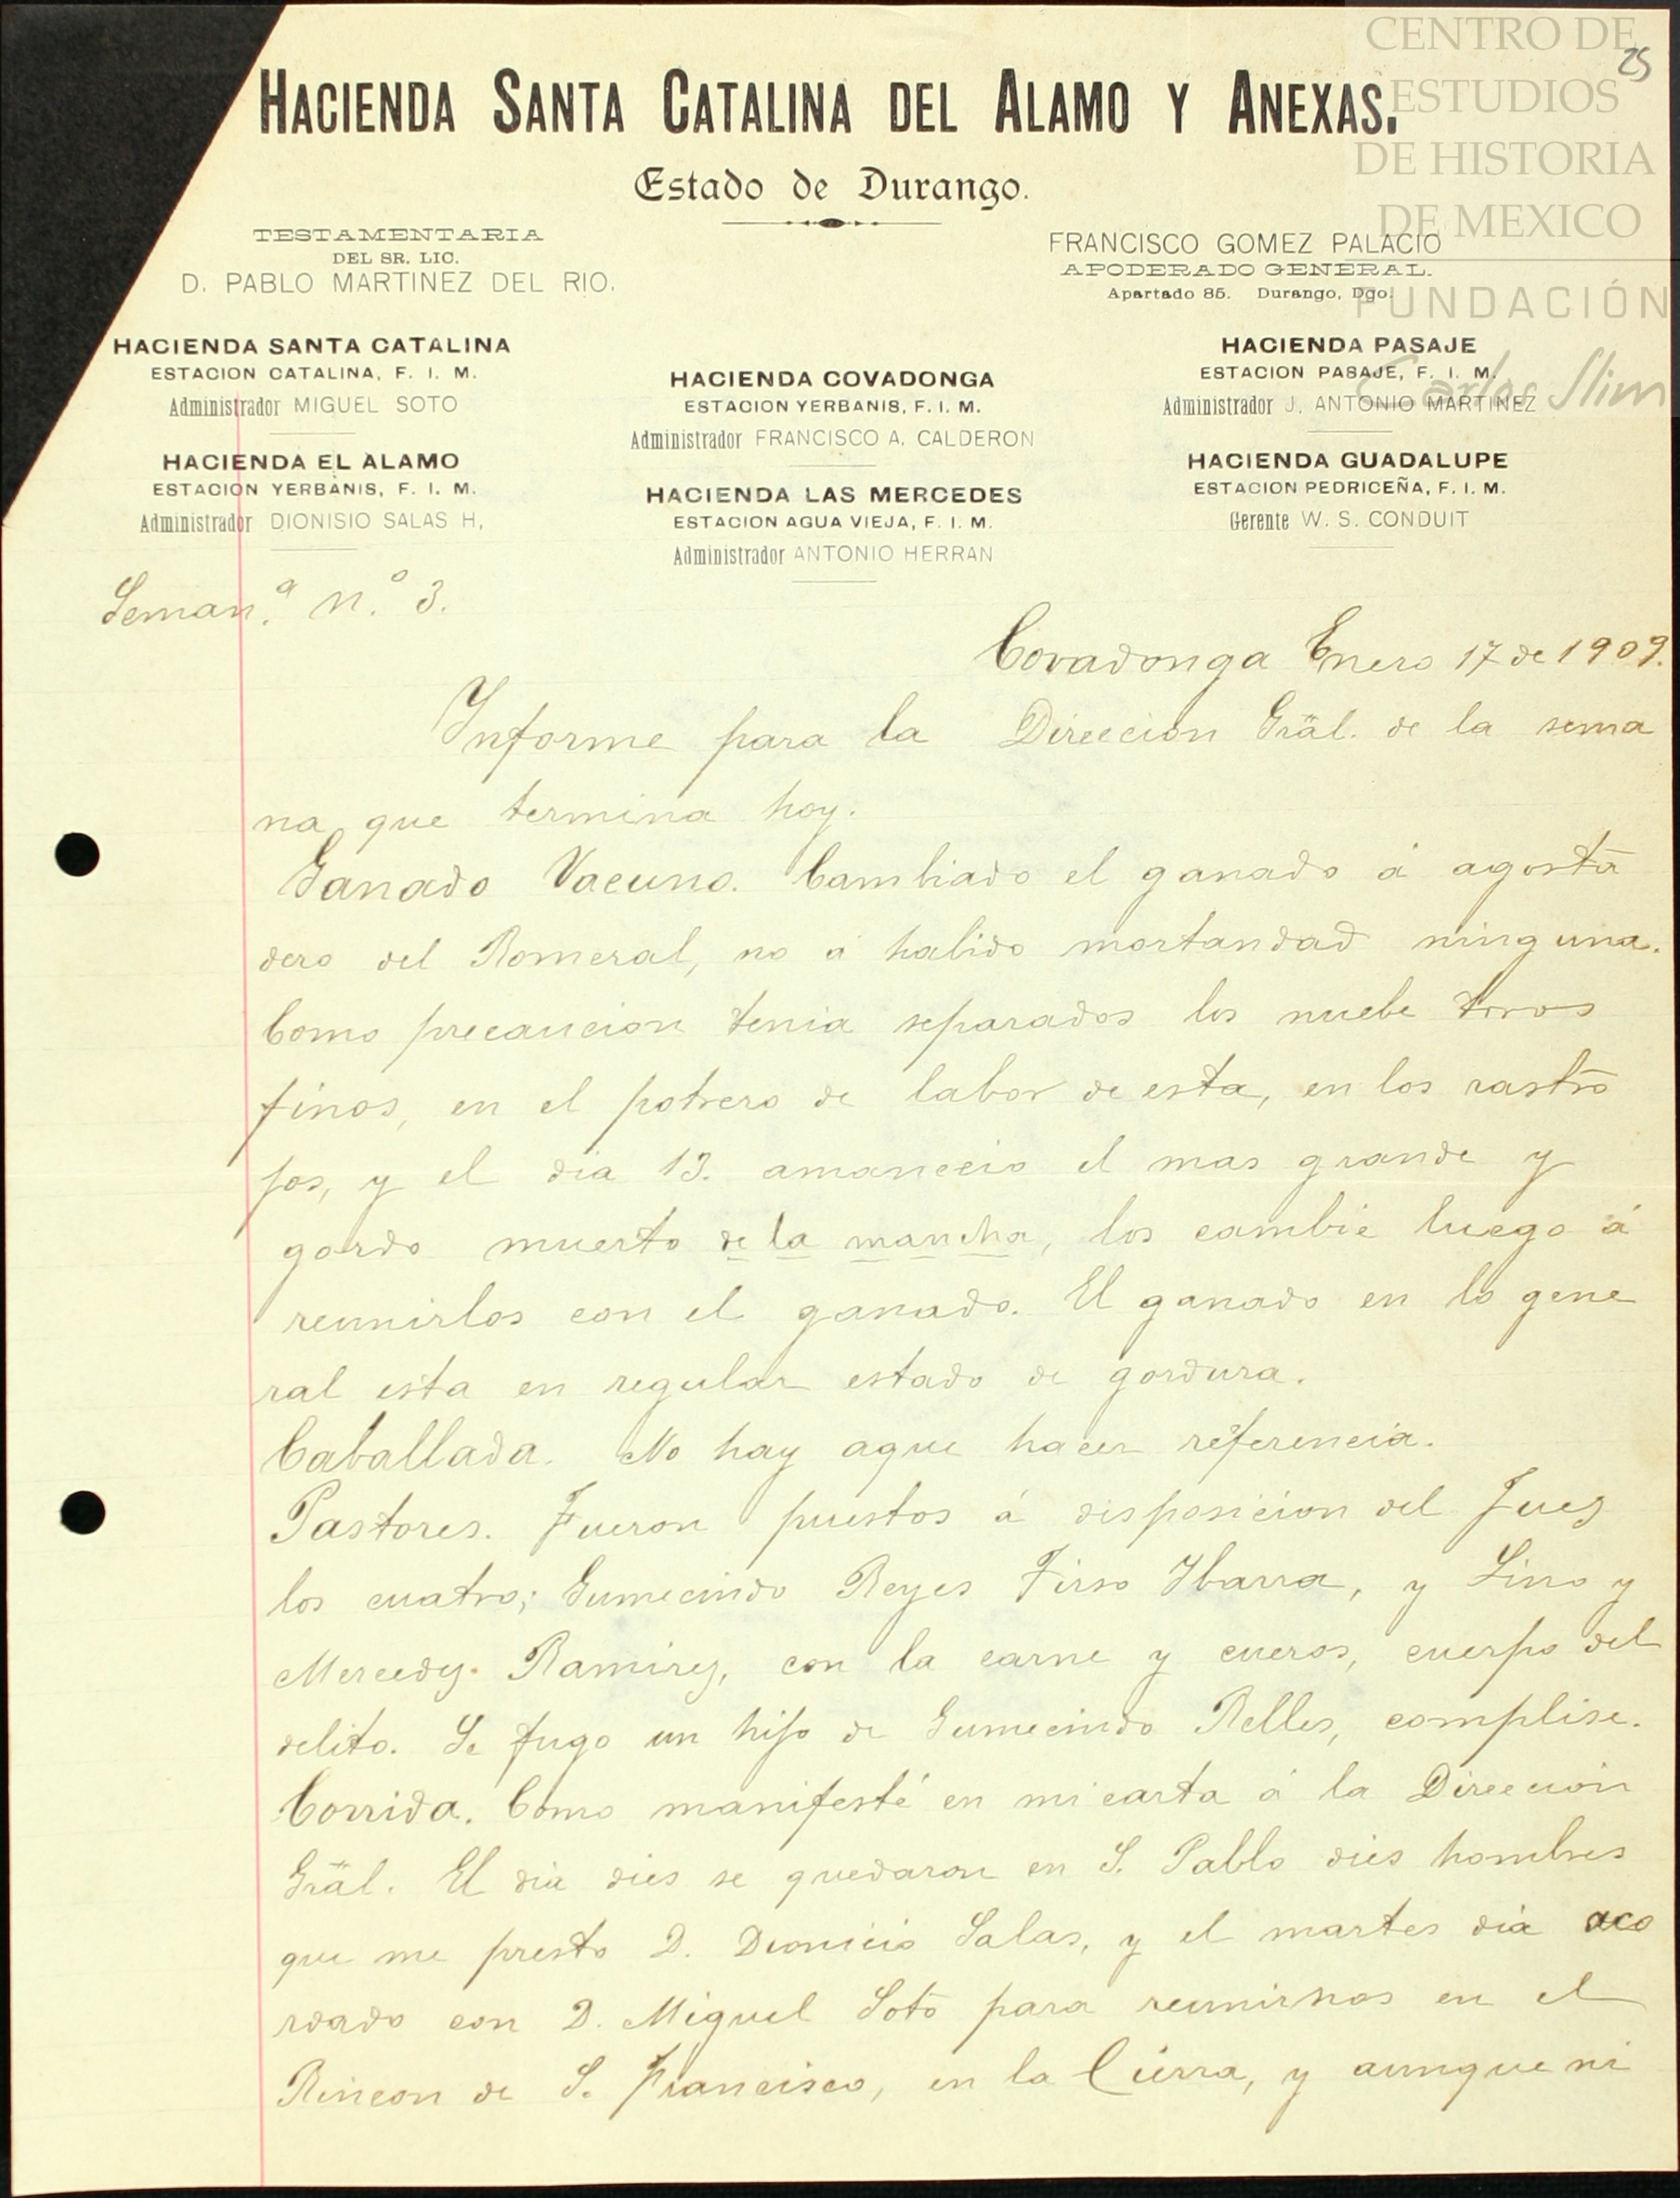 CENTRO DE
ESTUDIOS
DE HISTORIA
DE MEXICO
FUNDACIÓN
Carlos Slim
25
HACIENDA SANTA CATALINA DEL ALAMO Y ANEXAS.
Estado de Durango.
TESTAMENTARIA
DEL SR. LIC.
D. PABLO MARTINEZ DEL RIO.
FRANCISCO GOMEZ PALACIO
APODERADO GENERAL.
Apartado 85. Durango, Dgo.
HACIENDA SANTA CATALINA
ESTACION CATALINA, F. I. M.
Administrador MIGUEL SOTO
HACIENDA EL ALAMO
ESTACION YERBANIS, F. I. M.
Administrador DIONISIO SALAS H,
HACIENDA COVADONGA
ESTACION YERBANIS, F. I. M.
Administrador FRANCISCO A. CALDERON
HACIENDA LAS MERCEDES
ESTACION AGUA VIEJA, F. I. M.
Administrador ANTONIO HERRAN
HACIENDA PASAJE
ESTACION PASAJE, F. I. M.
Administrador J. ANTONIO MARTINEZ
HACIENDA GUADALUPE
ESTACION PEDRICEÑA, F. I. M.
Gerente W. S. CONDUIT
Seman.ª n.º 3.
Covadonga Enero 17 de 1909.
Informe para la Direccion Gräl. de la sema
na que termina hoy.
Ganado Vacuno. Cambiado el ganado á agosta
dero del Romeral, no á habido mortandad ninguna.
Como precaucion tenia separados los nuebe toros
finos, en el potrero de labor de esta, en los rastro
jos, y el dia 13. amanecio el mas grande y
gordo muerto de la mancha, los cambie luego á
reunirlos con el ganado. El ganado en lo gene
ral esta en regular estado de gordura.
Caballada. No hay aque hacer referencia.
Pastores. Fueron puestos á disposicion del Juez
los cuatro; Gumecindo Reyes Tirso Ybarra, y Lino y
Mercedez Ramirez, con la carne y cueros, cuerpo del
delito. Se fugo un hijo de Gumecindo Relles, complise.
Corrida. Como manifesté en mi carta á la Direccion
Gräl. El dia dies se quedaron en S. Pablo dies hombres
que me presto D. Dionicio Salas, y el martes dia aco
rdado con D. Miguel Soto para reunirnos en el
Rincon de S. Francisco, en la Cierra, y aunque ni